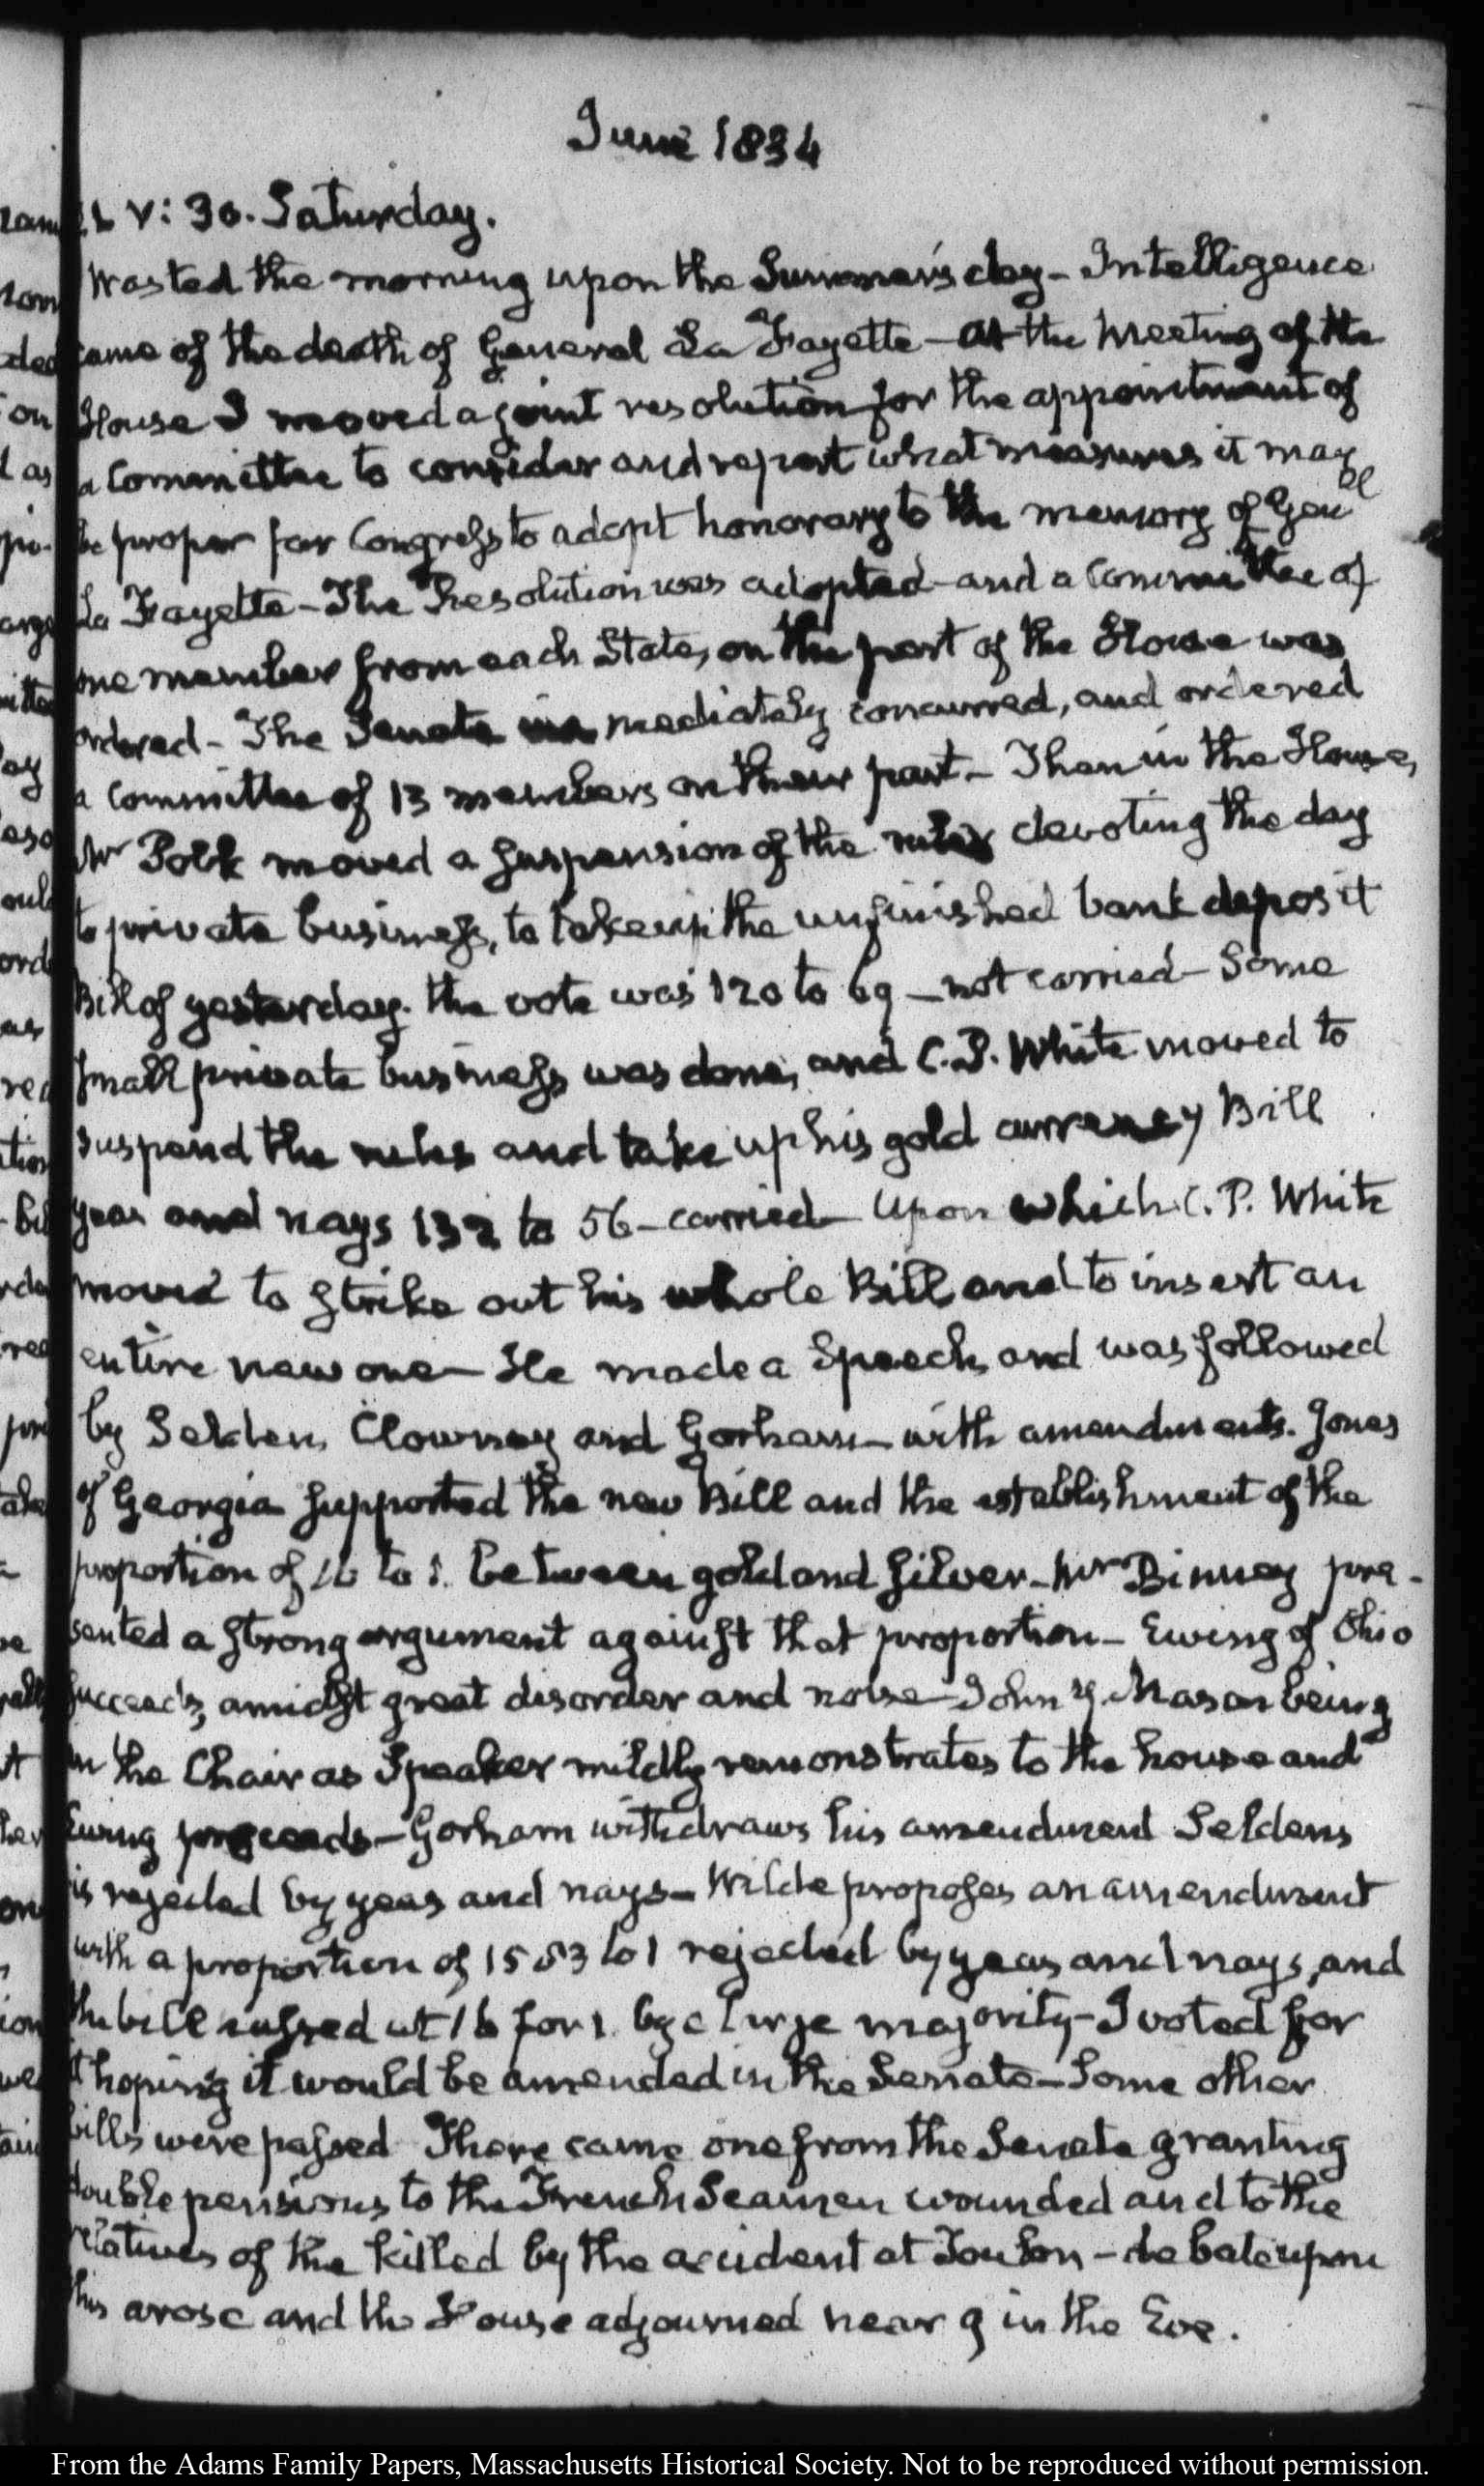 June 1834
21. V: 30. Saturday.
Wasted the morning upon the Summer's day – Intelligence
came of the death of General La Fayette – At the meeting of the
House I moved a joint resolution for the appointment of
a Committee to consider and report what measures it may
be proper for Congress to adopt honorary to the memory of Genl
La Fayette – The Resolution was adopted – and a Committee of
one member from each State, on the part of the House was
ordered – The Senate immediately concurred, and ordered
a Committee of 13 members on their part – Then in the House,
Mr Polk moved a suspension of the rules devoting the day
to private business, to take up the unfinished bank deposit
Bill of yesterday. the vote was 120 to 69 – not carried – Some
small private business was done, and C. P. White moved to
suspend the rules and take up his gold currency Bill
yeas and nays 132 to 56 – carried – Upon which C. P. White
moved to strike out his whole Bill and to insert an
entire new one – He made a Speech, and was followed
by Selden, Clowney and Gorham – with amendments. Jones
of Georgia supported the new Bill and the establishment of the
proportion of 16 to 1. between gold and silver – Mr Binney pre-
sented a strong argument against that proportion – Ewing of Ohio
succeeds, amidst great disorder and noise – John Y. Mason being
in the Chair as Speaker mildly remonstrates to the house and
Ewing proceeds – Gorham withdraws his amendment Selden's
is rejected by yeas and nays – Wilde proposes an amendment
with a proportion of 15 63 to 1 rejected by yeas and nays, and
the bill passed at 16 for 1. by a large majority – I voted for
it hoping it would be amended in the Senate – Some other
bills were passed There came one from the Senate granting
double pensions to the French Seamen wounded and to the
relatives of the killed by the accident at Toulon – debate upon
this arose and the House adjourned near 9 in the Eve.
From the Adams Family Papers, Massachusetts Historical Society. Not to be reproduced without permission.